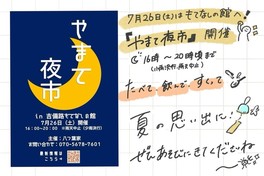 やまて
夜市
in 吉備路もてなしの館
7月26日(土)開催
16:00~20:00 ※雨天中止(少雨決行)
主催:八ツ葉家
お問い合わせ:070-5678-7601
最新情報は
こちら→
7月26日(土)はもてなしの館へ!
『やまて夜市』開催
16時~20時頃まで
(小雨決行、雨天中止)
たべて、飲んで、すくって
夏の思い出に!
ぜひあそびにきてくださいね~